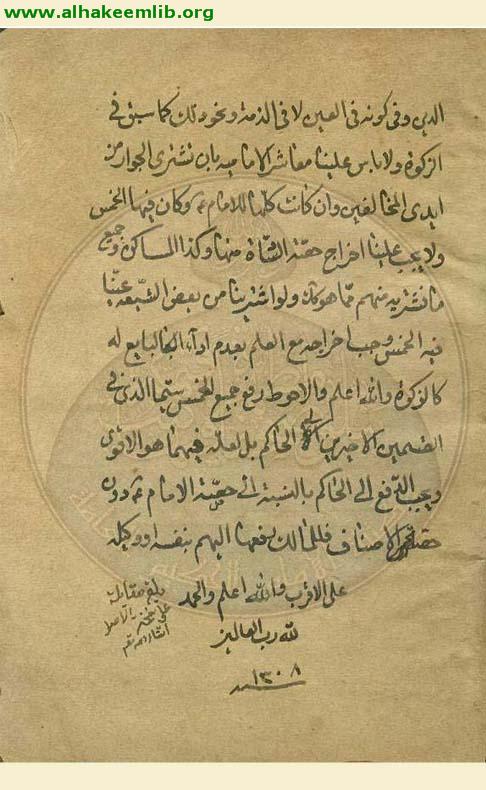 www.alhakeemlib.org
الدين وفى كونه فى العين لا فى الذمة ونحو ذلك كما سبق فى
الزكوة ولا باس علينا معاشر الامامية بان نشترى الجوار من
ايدى المخالفين وان كانت كلها للامام ع وكان فيها الخمس
ولا يجب علينا اخراج حصة منها وكذا المساكن وجميع
ما نشتريه منهم مما هو كك ولو اشترينا من بعض الشيعه عينا
فيه الخمس وجب اخراجه مع العلم بعدم اداء البايع له
كالزكوة والله اعلم والاحوط رفع جميع الخمس سيما الذى فى
القسمين الاخيرين الى الحاكم بل لعله فيهما هو الاقوى
ويجب الدفع الى الحاكم بالنسبة الى حصة الامام ع دون
الاصناف فللمالك دفعها اليهم بنفسه او وكيله
على الاقرب والله اعلم والحمد
لله رب العالمين
١٣٠٨
بلغ مقابلة